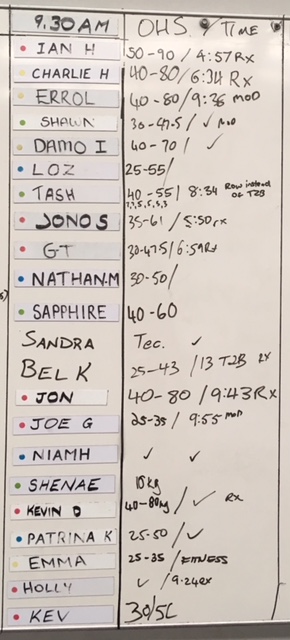 9.30AM OHS. / TIME
IAN H 50-90 / 4:57 Rx
CHARLIE H 40-80 / 6:34 Rx
ERROL 40-80 / 9:36 MOD
SHAWN 30-47.5 / ✓ MOD
DAMO I 40-70 / ✓
LOZ 25-55/
TASH 40-55 / 8:34 Row instead of T2B
7,7,5,5,3,3
JONO S 35-61 / 5:50 rx
GT 30-47.5 / 6:59 Rx
NATHAN.M 30-50/
SAPPHIRE 40-60
SANDRA Tec. ✓
BEL K 25-43 / 13 T2B RX
JON 40-80 / 9:43 Rx
JOE G 25-35 / 9:55 MOD
NIAMH ✓ ✓
SHENAE 18kg
KEVIN D 40-80kg / ✓ RX
PATRINA K 25-50 / ✓
EMMA 25-35 / FITNESS
HOLLY ✓ / 9:24 RX
KEV 30/50